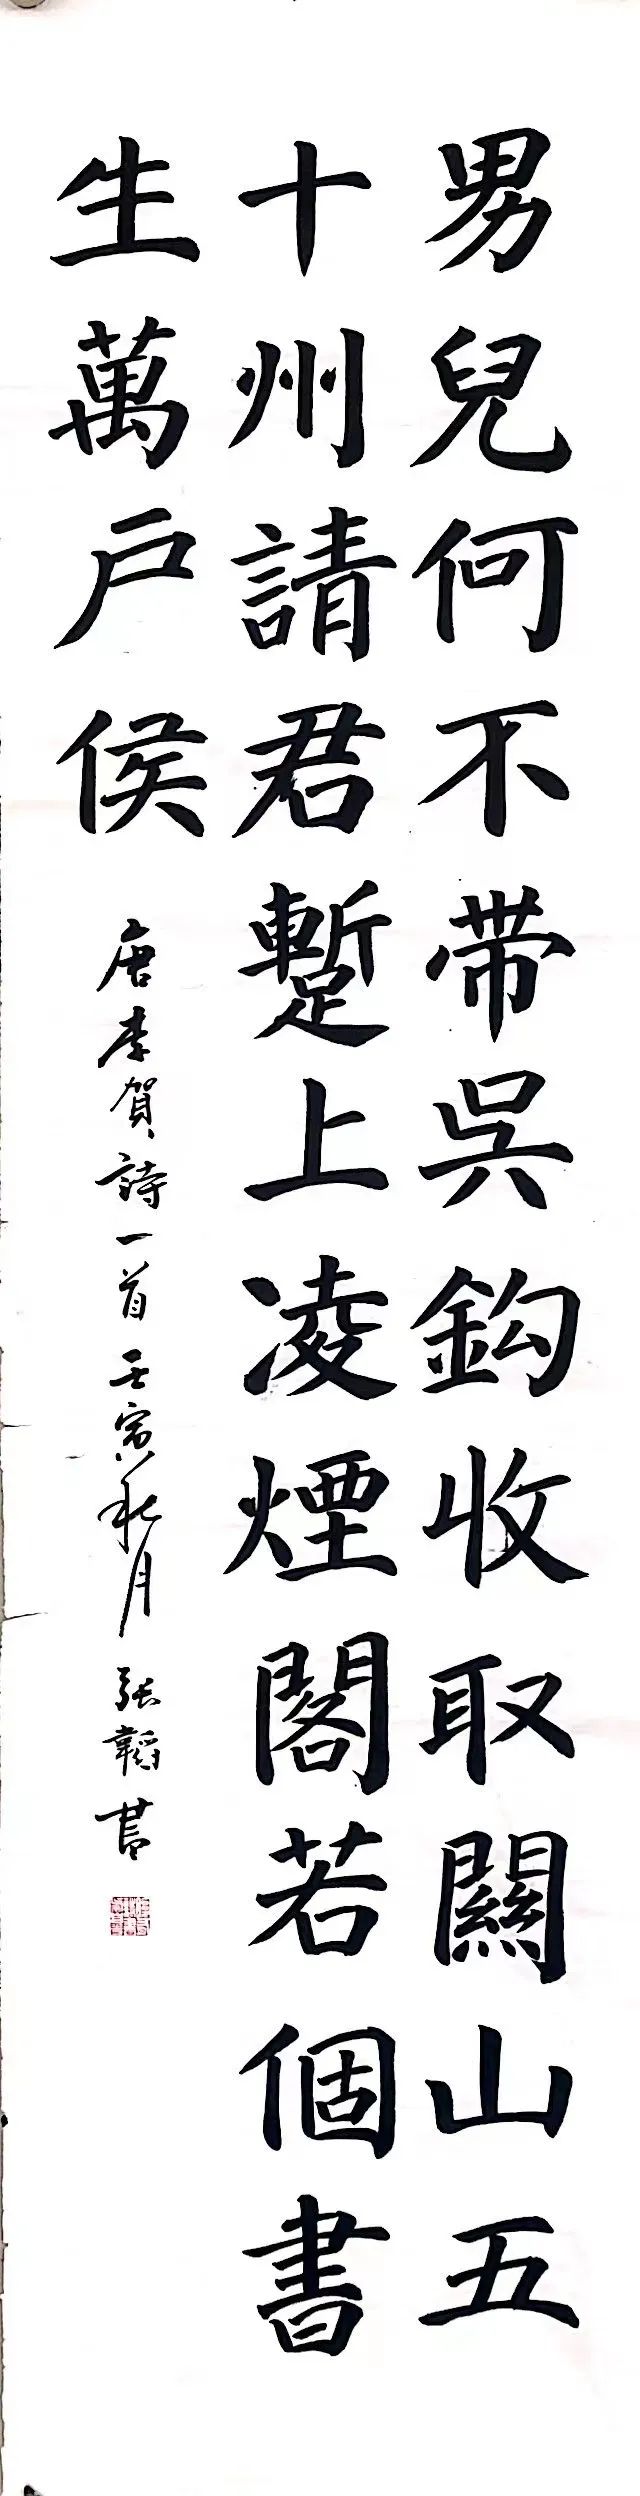 男兒何不带吳鈎收取關山五
十州請君蹔上凌煙閣若個書
生萬户侯
唐李賀詩一首壬寅秋月張韜書